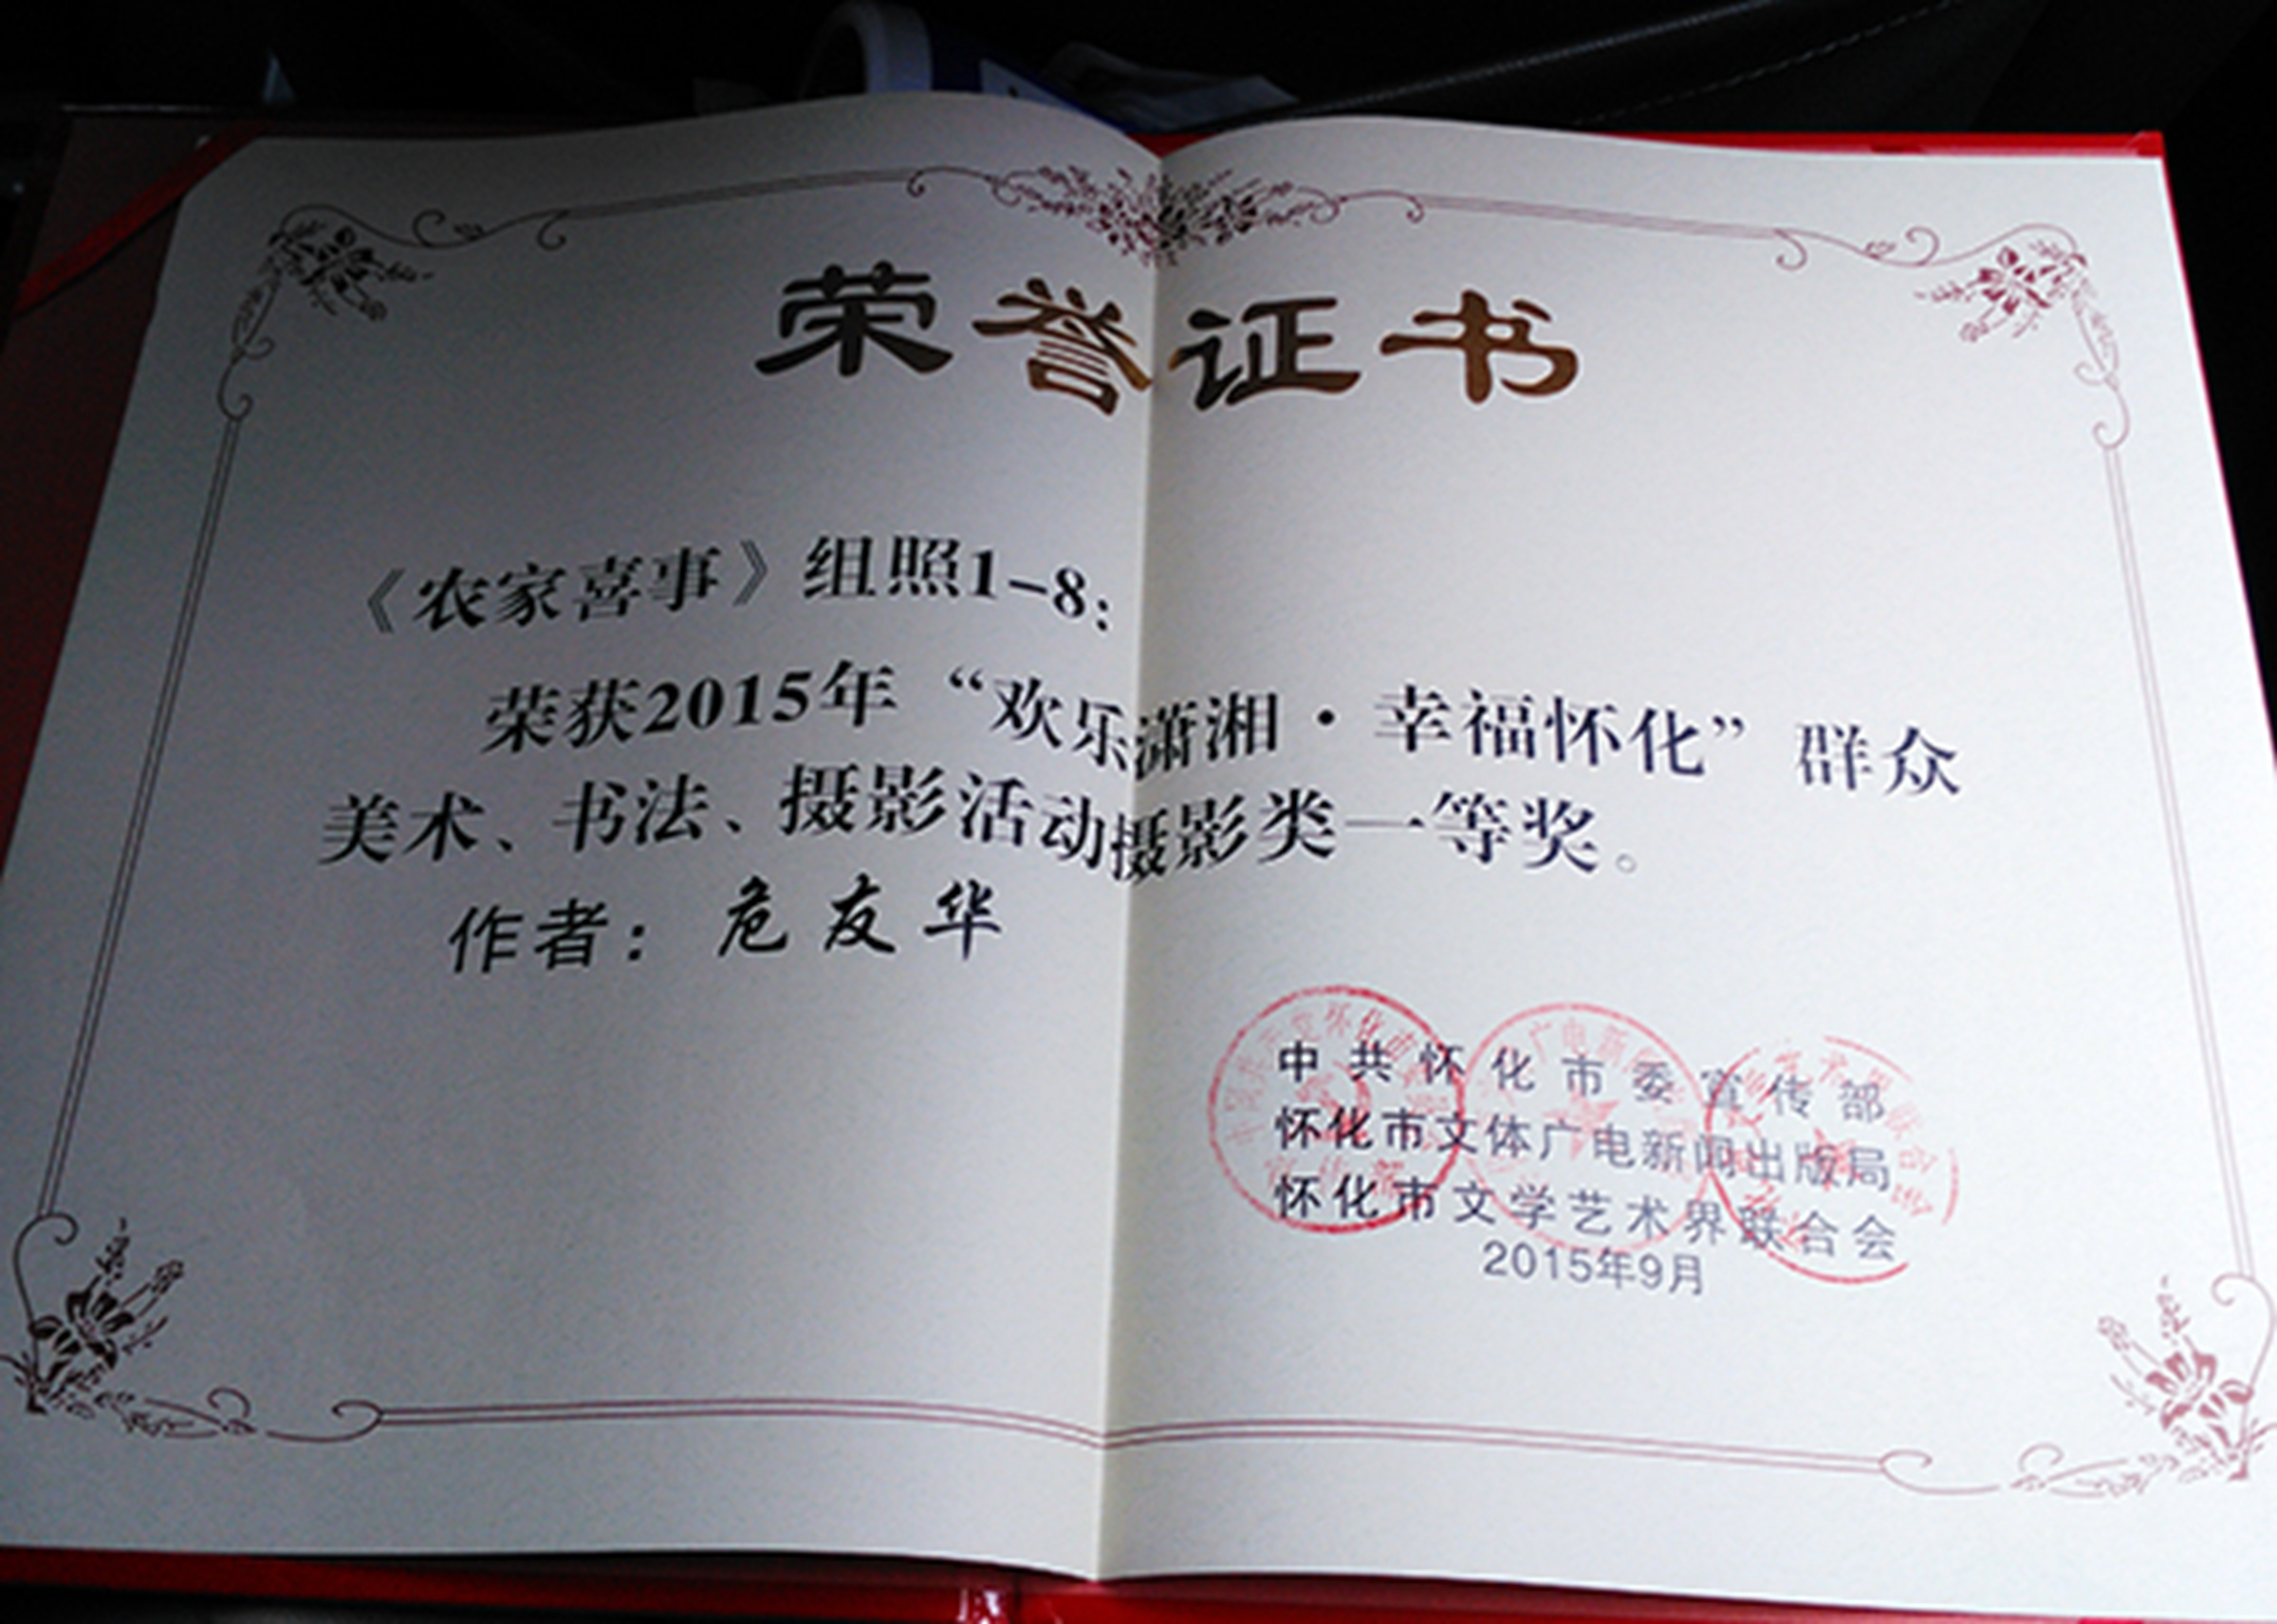 荣誉证书
《农家喜事》组照1-8：
荣获2015年“欢乐潇湘·幸福怀化”群众
美术、书法、摄影活动摄影类一等奖。
作者：危友华
中共怀化市委宣传部
怀化市文体广电新闻出版局
怀化市文学艺术界联合会
2015年9月